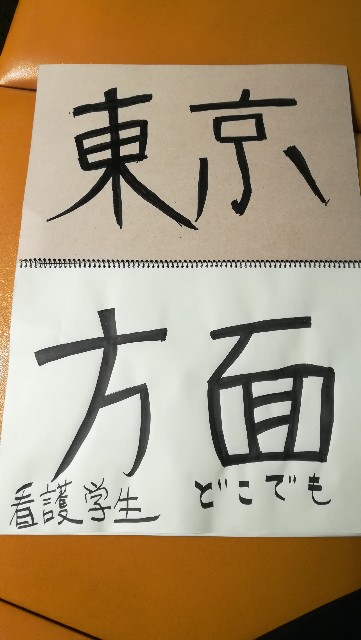 東京
方面
看護学生 どこでも